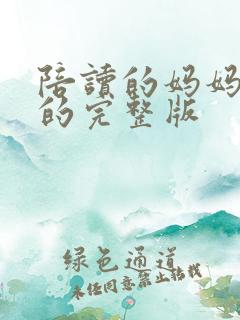 陪讀的妈妈
的完整版
绿色通道
未经同意禁止转载